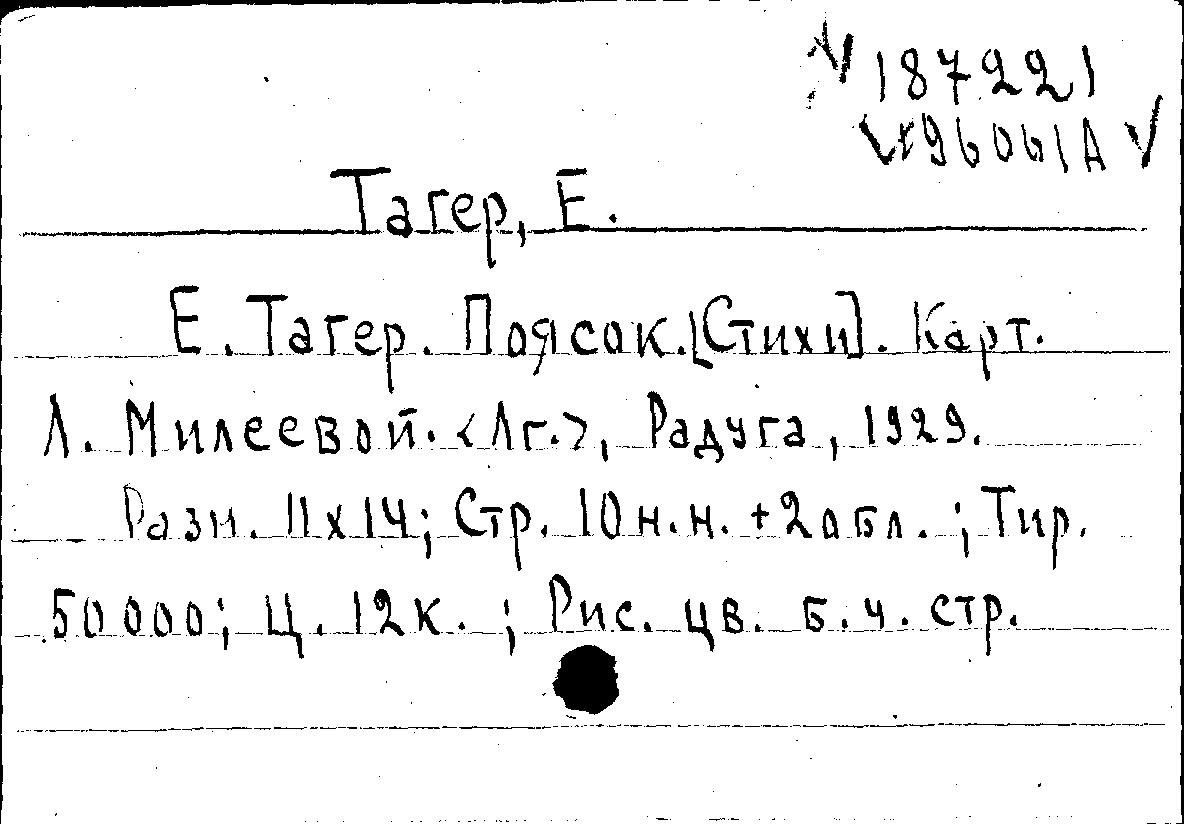 √ 187221
√ 96061А √
Тагер, Е.
Е. Тагер. Поясок. [Стихи]. Карт.
Л. Милеевой. <Лг.>, Радуга, 1929.
Разм. 11х14; Стр. 10 н.н. + 2 обл.; Тир.
50000; Ц. 12к.; Рис. цв. б.ч. стр.